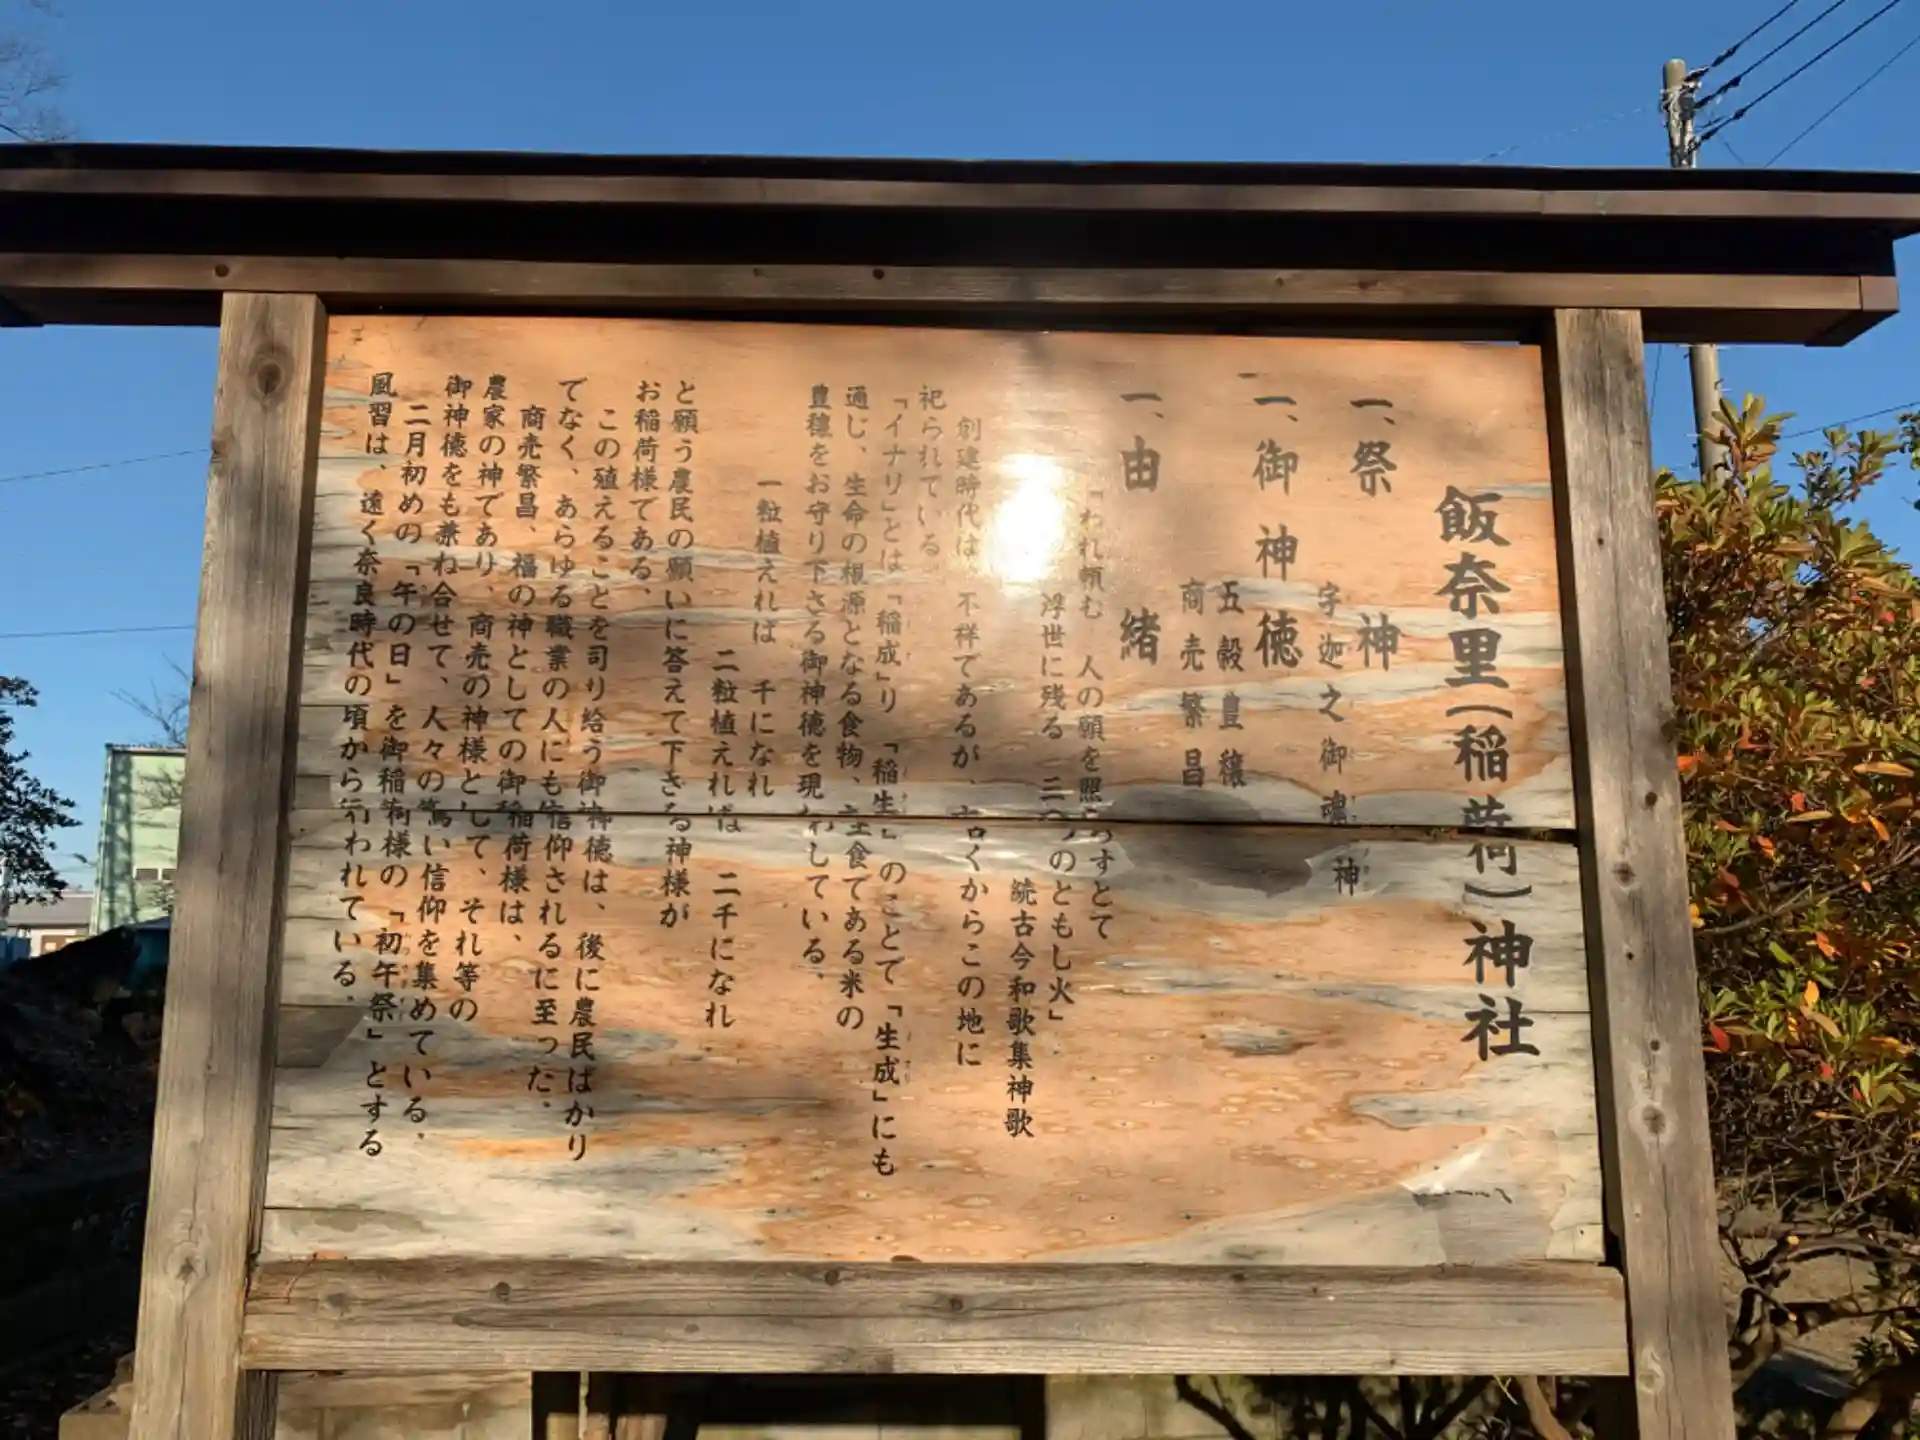 飯奈里(稲荷)神社
一、祭神
宇迦之御魂神
一、御神徳
五穀豊穣
商売繁昌
一、由緒
「われ頼む 人の願を照らすとて
浮世に残る 三つのともし火」
続古今和歌集神歌
創建時代は、不祥であるが、古くからこの地に
祀られている。
「イナリ」とは「稲成」り 「稲生」のことで「生成」にも
通じ、生命の根源となる食物、主食である米の
豊穣をお守り下さる御神徳を現わしている。
一粒植えれば 千になれ
二粒植えれば 二千になれ
と願う農民の願いに答えて下さる神様が
お稲荷様である。
この殖えることを司り給う御神徳は、後に農民ばかり
でなく、あらゆる職業の人にも信仰されるに至った。
商売繁昌、福の神としての御稲荷様は、
農家の神であり、商売の神様として、それ等の
御神徳をも兼ね合せて、人々の篤い信仰を集めている。
二月初めの「午の日」を御稲荷様の「初午祭」とする
風習は、遠く奈良時代の頃から行われている。